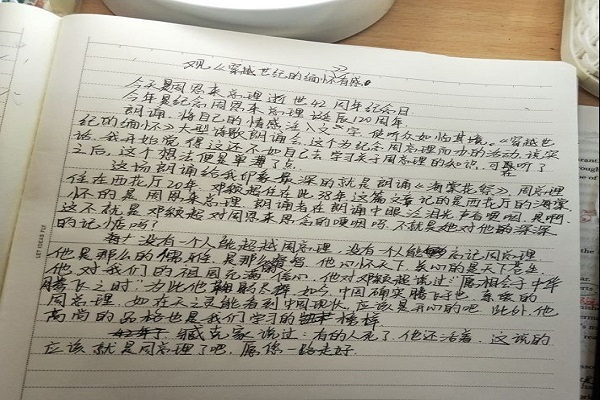 观《穿越世纪的缅怀》有感。
今天是周恩来总理逝世42周年纪念日
今年是纪念周恩来总理诞辰120周年
朗诵，将自己的情感注入文字，使听众如临其境。《穿越世
纪的缅怀》大型诗歌朗诵会，这个为纪念周总理而办的活动，该实
话，我开始觉得这还不如自己去学习关于周总理的知识，可在听了
之后，这个想法便是单薄了点。
这场朗诵给我印象最深的就是朗诵《海棠花祭》，周总理
住在西花厅20年，邓颖超住在此38年这篇文章记的是西花厅的海棠，
怀的是周恩来总理，朗诵者在朗诵中眼泛泪光声音哽咽，是啊，
这不就是邓颖超对周恩来思念的哽咽吗，不就是她对他的深深
的记惦吗？
没有一个人能超越周总理，没有一个人能忘记周总理
他是那么的，是那么，他心怀天下，关心的是天下苍生
他对我们的祖国充满信心，他对邓颖超说过"愿相会于中华
腾飞之时"为此他鞠躬尽瘁，如今，中国确实腾飞了也，亲爱的
周总理，如在天之灵能看到中国现状，应该是开心的吧，此外，他
高尚的品格也是我们学习的榜样
臧克家说过：有的人死了，他还活着，这说的
应该就是周总理了吧，愿您一路走好。
LET IDEAS FLY